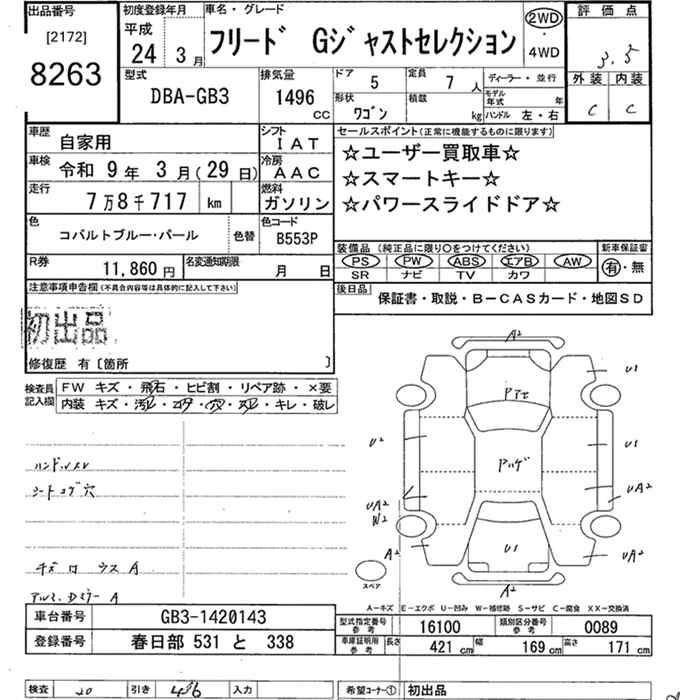 出品番号
[2172]
8263
初度登録年月
平成
24 年 3 月
車名・グレード
フリード Gジャストセレクション
2WD
・
4WD
評価点
3.5
外装 内装
C C
型式
DBA-GB3
排気量
1496 CC
ドア 5
定員 7 人
ディーラー・並行
形状 ワゴン
積載 kg
モデル年式 年
ハンドル 左・右
車歴 自家用
シフト IAT
車検 令和 9 年 3 月(29 日)
冷房 AAC
走行 7万8千717 km
燃料 ガソリン
色 コバルトブルー・パール 色替
色コード B553P
R券 11,860 円
名変通知期限 月 日
セールスポイント(正常に機能するものに限ります)
☆ユーザー買取車☆
☆スマートキー☆
☆パワースライドドア☆
装備品 (純正品に限り○をつけてください)
PS PW ABS エアB AW
SR ナビ TV カワ
新車保証書
有・無
後日品
保証書・取説・B-CASカード・地図SD
注意事項申告欄(不具合内容等は具体的に記入して下さい)
初出品
修復歴 有〔箇所 〕
検査員記入欄
FW キズ・飛石・ヒビ割・リペア跡・×要
内装 キズ・汚レ・コゲ・穴・スレ・キレ・破レ
シートコゲ穴
A2
U1
U2
U1
UA2
UA2
W2
A2
U1
UA2
A2
スペア
A-キズ E-エクボ U-凹み W-補修跡 S-サビ C-腐食 XX-交換済
車台番号 GB3-1420143
登録番号 春日部 531 と 338
型式指定番号 参考 16100
類別区分番号 参考 0089
車庫証明用 参考
長さ 421 cm
幅 169 cm
高さ 171 cm
検査 20
引き
入力
希望コーナー① 初出品